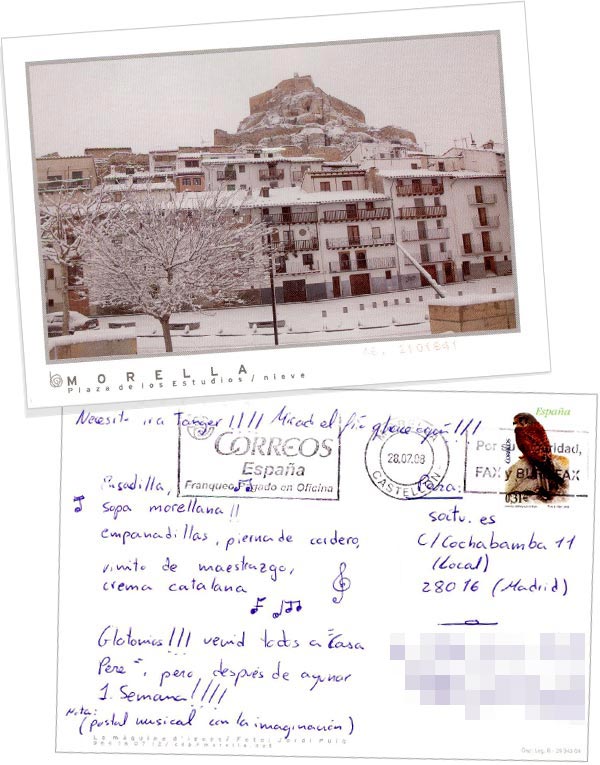 MORELLA
Plaza de los Estudios / nieve
Necesito ir a Tanger!!!! Mirad el frío que hace aquí!!!
España
CORREOS
España
Franqueo Pagado en Oficina
28.07.08
CASTELLON
Por su
FAX y BUROFAX
CORREOS
0,31€
Para:
Pesadilla,
sopa morellana!!
empanadillas, pierna de cordero,
vinito de maestrazgo,
crema catalana
soitu.es
C/Cochabamba 11
(Local)
28016 (Madrid)
Glotonios!!! venid todos a "Casa
Pere", pero después de ayunar
1. Semana!!!!
Nota:
(postal musical con la imaginación)
Foto: Jordi Puig